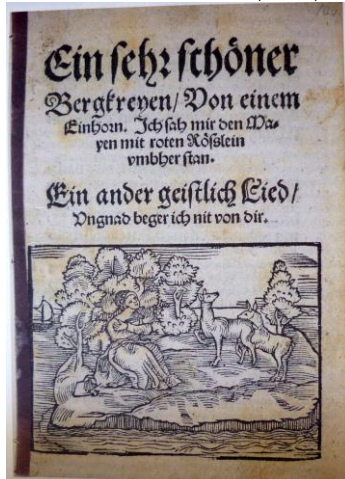 Ein sehr schöner
Bergkreyen/ Von einem
Einhorn. Ich sah mir den Ma-
yen mit roten Rößlein
vmbher stan.
Ein ander geistlich Lied/
Vngnad beger ich nit von dir.